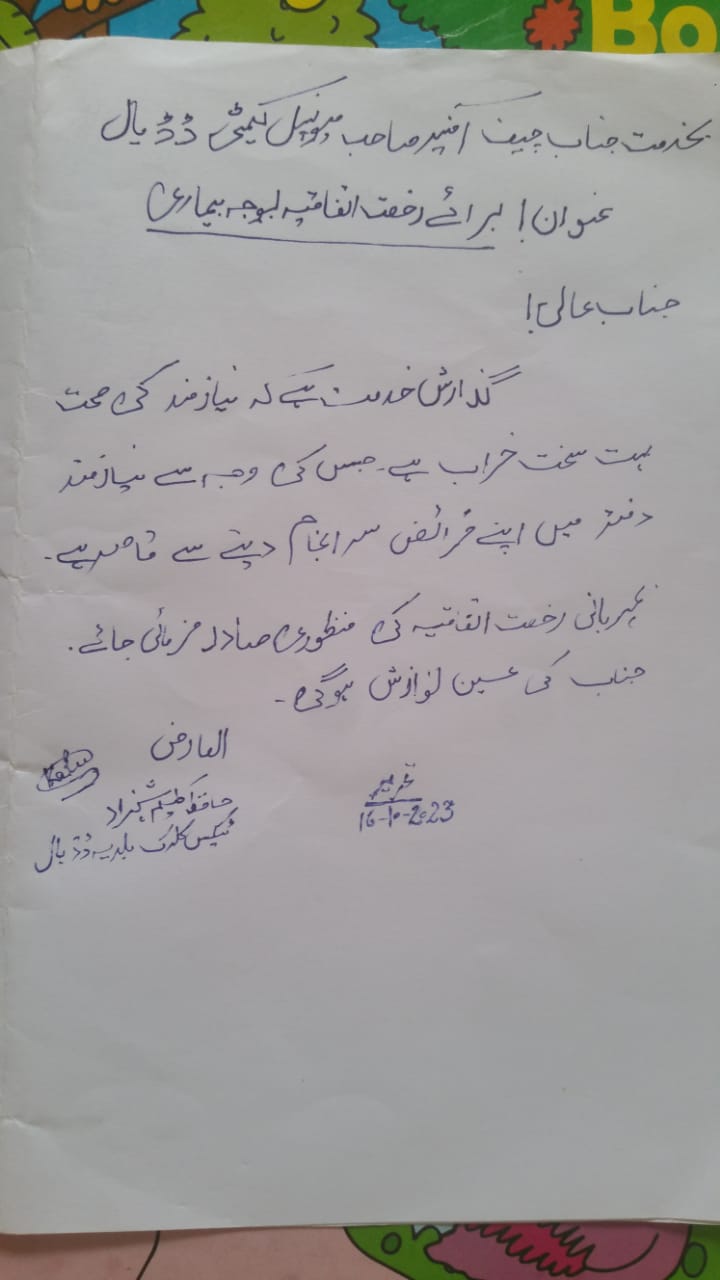 Bo
بخدمت جناب چیف آفیسر صاحب میونسپل کمیٹی ڈڈیال
عنوان! برائے رخصت اتفاقیہ بوجہ بیماری
جناب عالی!
گذارش خدمت ہے کہ نیازمند کی صحت
بہت سخت خراب ہے۔ جس کی وجہ سے نیازمند
دفتر میں اپنے فرائض سرانجام دینے سے قاصر ہے۔
بمہربانی رخصت اتفاقیہ کی منظوری صادر فرمائی جائے۔
جناب کی عین نوازش ہوگی۔
العارض
حافظ شہزاد
ٹیکس کلرک بلدیہ ڈڈیال
تحریر
16-10-2023